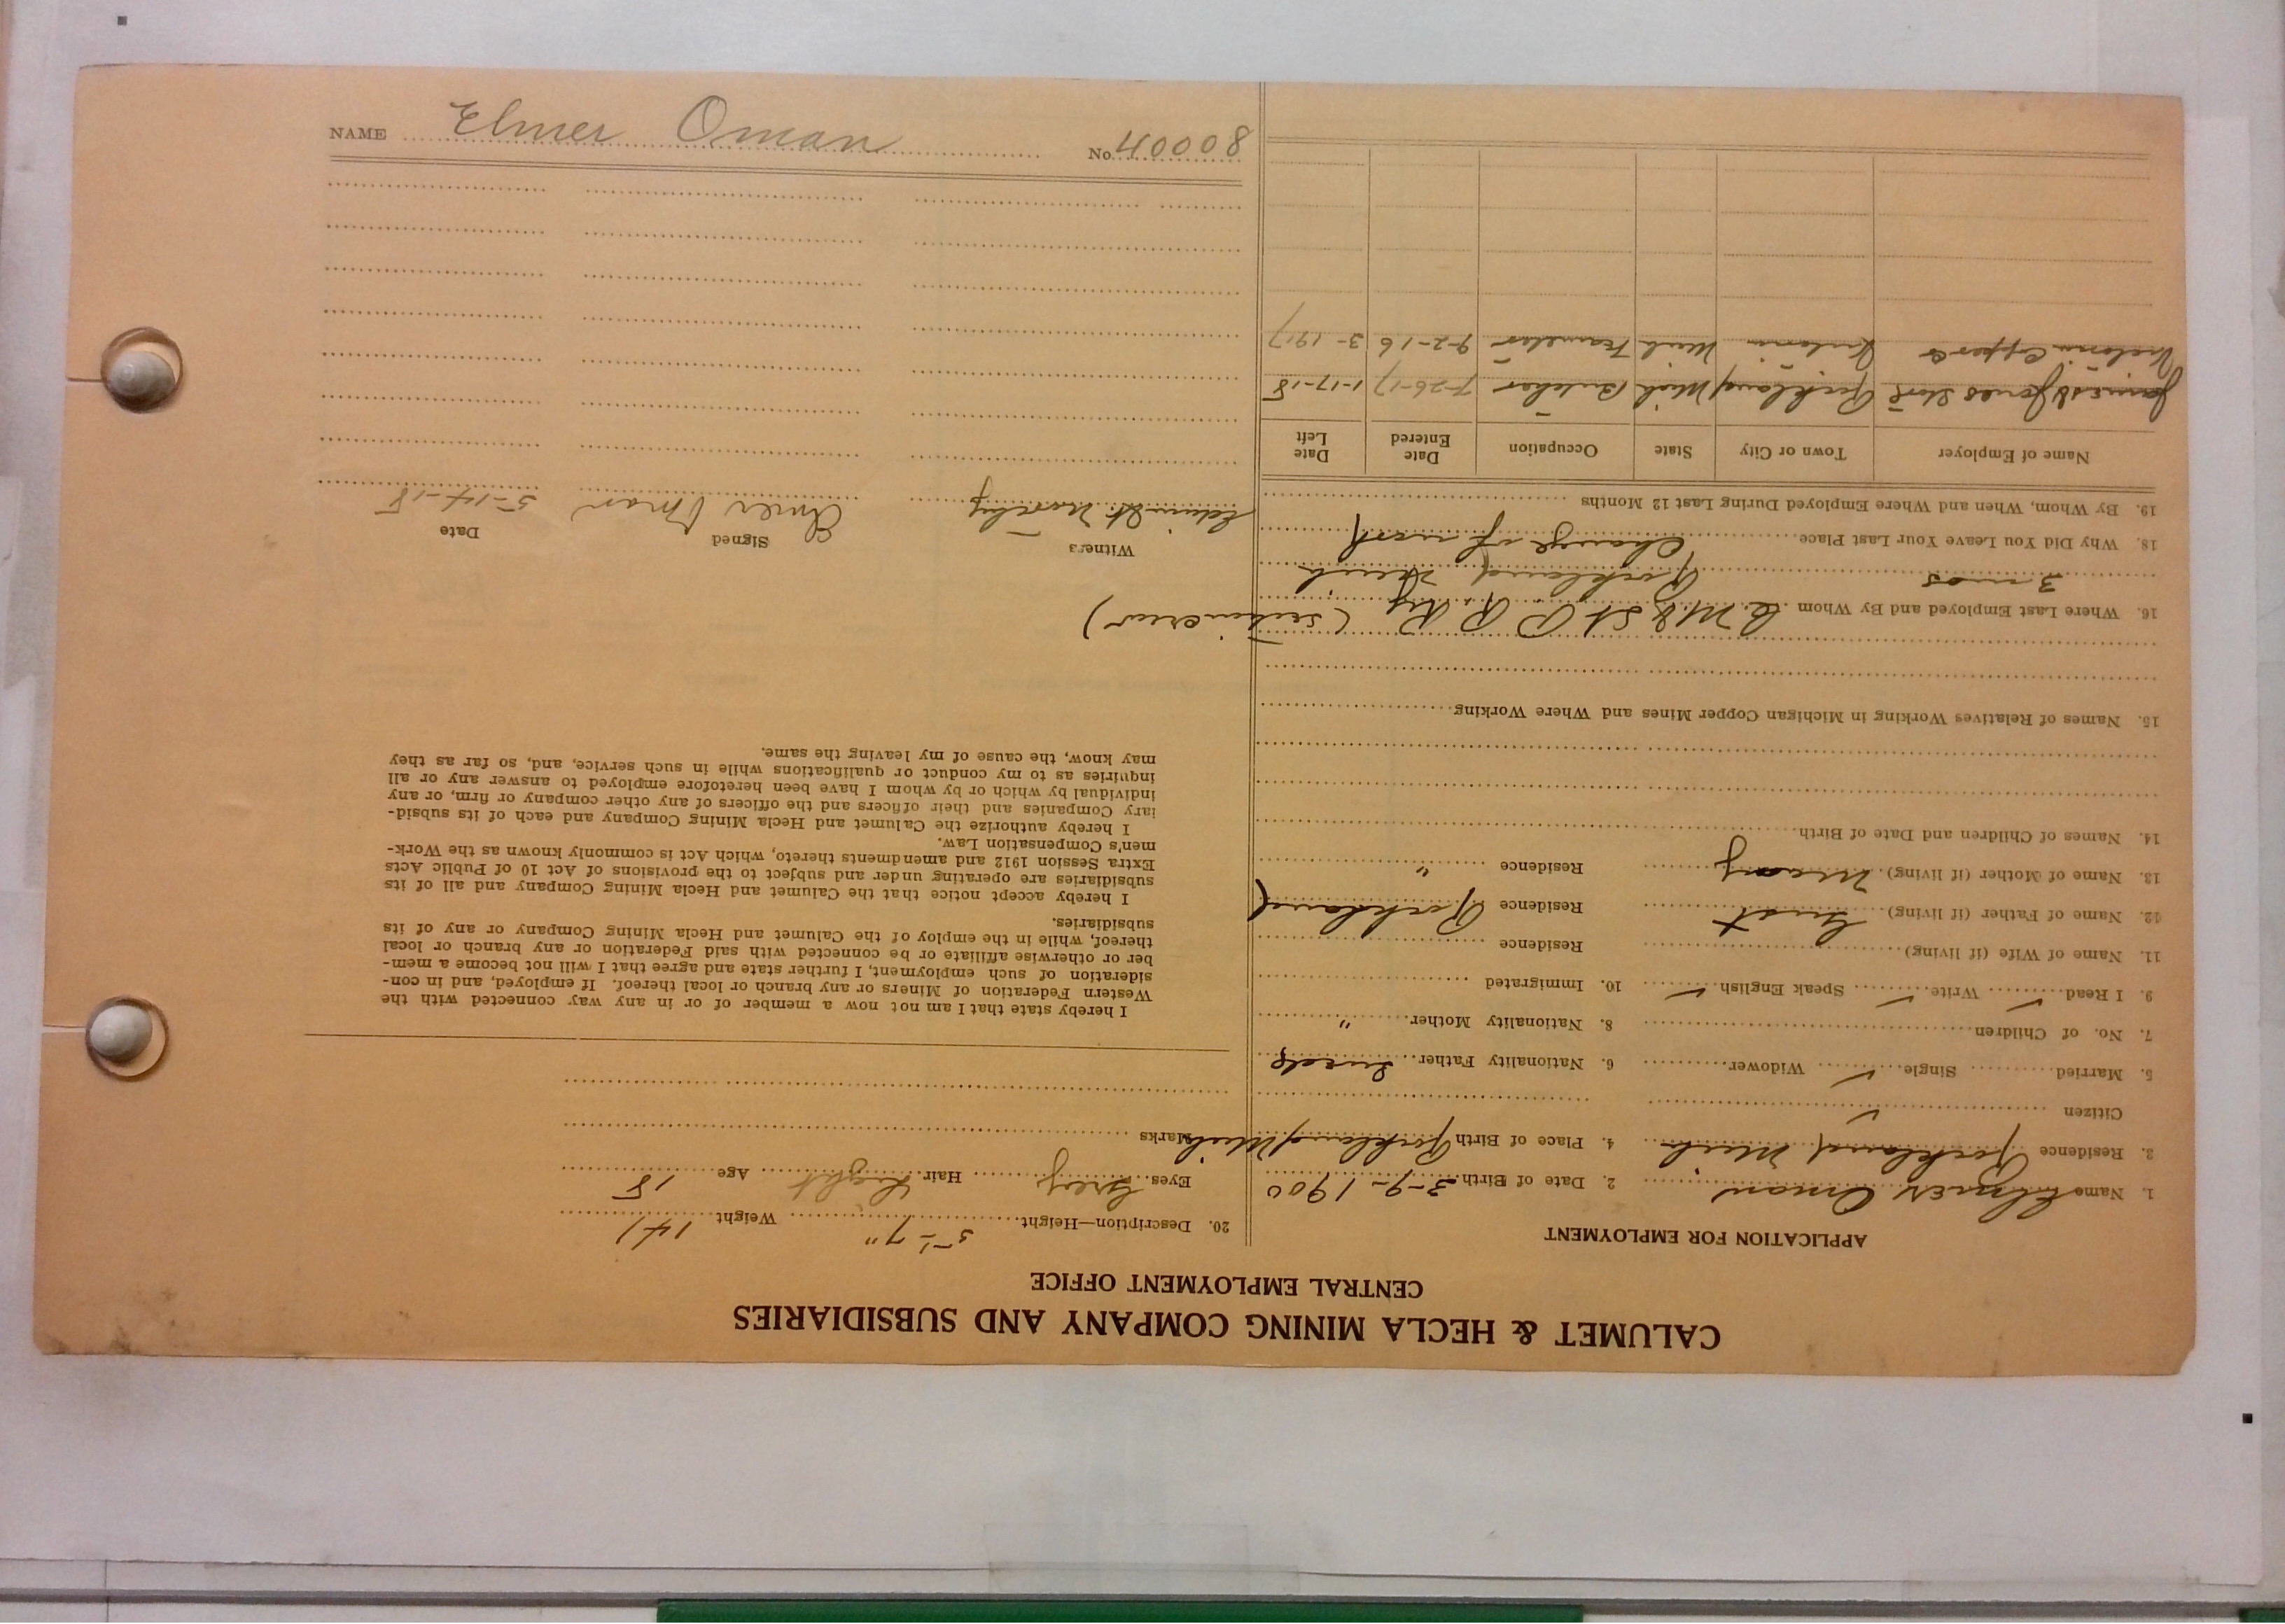 CALUMET & HECLA MINING COMPANY AND SUBSIDIARIES
CENTRAL EMPLOYMENT OFFICE
APPLICATION FOR EMPLOYMENT
1. Name Elmer Oman 2. Date of Birth 3-9-1900
3. Residence Rockland Mich 4. Place of Birth Rockland Mich
Citizen ✓
5. Married Single ✓ Widower 6. Nationality Father Swede
7. No. of Children 8. Nationality Mother "
9. I Read ✓ Write ✓ Speak English ✓ 10. Immigrated
11. Name of Wife (if living) Residence
12. Name of Father (if living) Gust Residence Rockland
13. Name of Mother (if living) Residence "
14. Names of Children and Date of Birth
15. Names of Relatives Working in Michigan Copper Mines and Where Working
16. Where Last Employed and By Whom C. M & St P R Ry (section crew)
3 mos Rockland Mich
18. Why Did You Leave Your Last Place Change of work
19. By Whom, When and Where Employed During Last 12 Months
Name of Employer Town or City State Occupation Date Entered Date Left
Jones Store Rockland Mich Butcher 7-26-17 1-17-18
Victoria Copper Co Victoria Mich Trammer 9-2-16 3-1917
20. Description—Height 5'-7" Weight 141
Eyes Grey Hair Light Age 18
Marks
I hereby state that I am not now a member of or in any way connected with the
Western Federation of Miners or any branch or local thereof. If employed, and in con-
sideration of such employment, I further state and agree that I will not become a mem-
ber or otherwise affiliate or be connected with said Federation or any branch or local
thereof, while in the employ of the Calumet and Hecla Mining Company or any of its
subsidiaries.
I hereby accept notice that the Calumet and Hecla Mining Company and all of its
subsidiaries are operating under and subject to the provisions of Act 10 of Public Acts
Extra Session 1912 and amendments thereto, which Act is commonly known as the Work-
men's Compensation Law.
I hereby authorize the Calumet and Hecla Mining Company and each of its subsid-
iary Companies and their officers and the officers of any other company or firm, or any
individual by which or by whom I have been heretofore employed to answer any or all
inquiries as to my conduct or qualifications while in such service, and, so far as they
may know, the cause of my leaving the same.
Witness Signed Date
Elmer Oman 5-14-18
NAME Elmer Oman No. 40008